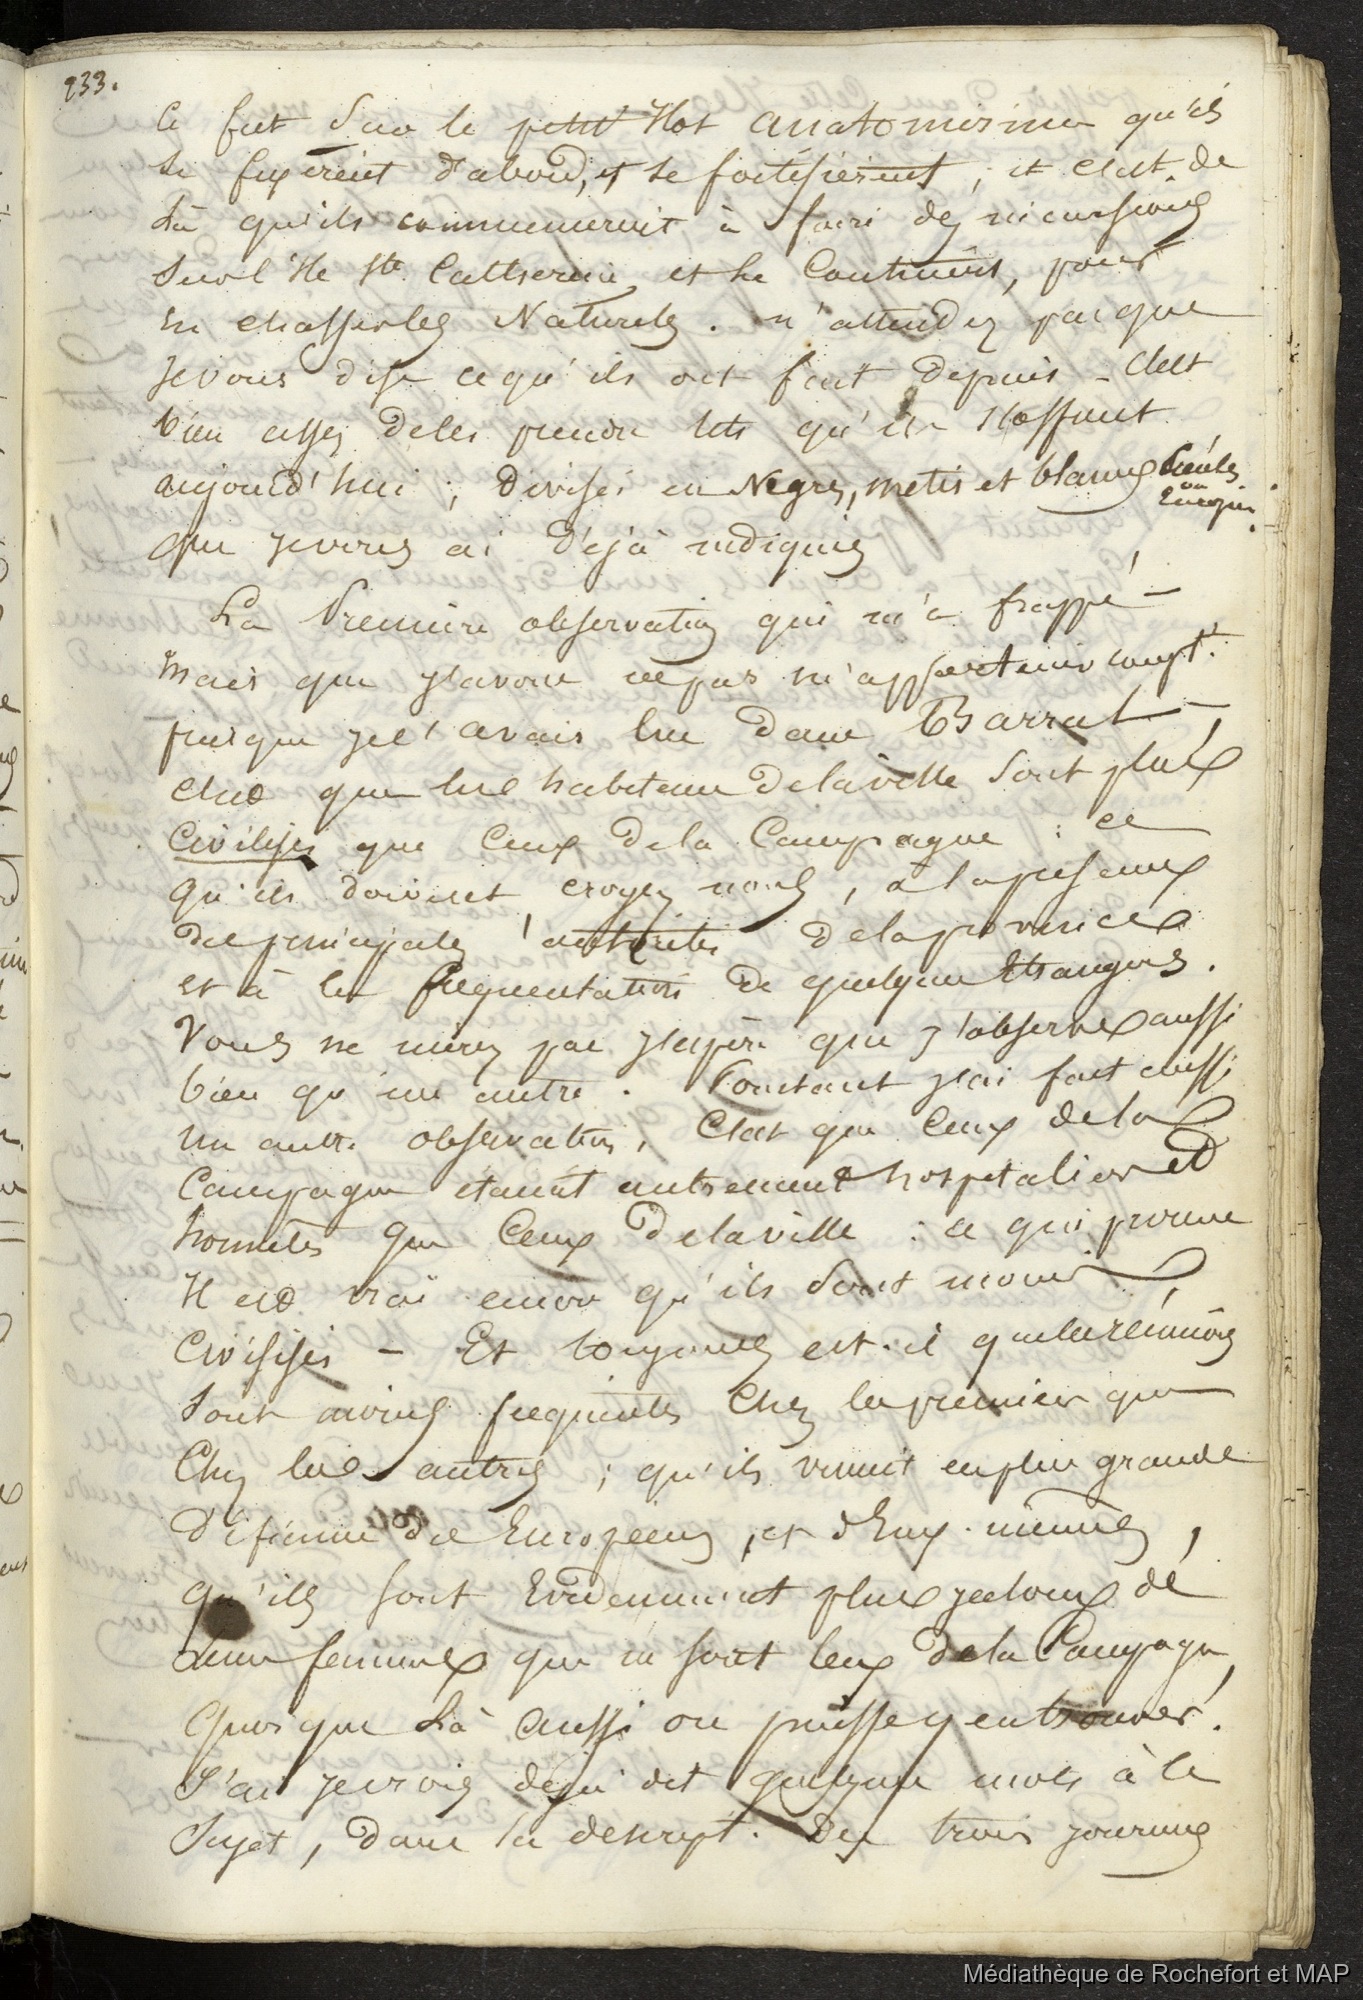 233.
Ce fut sur le petit Ilot anatomirim qu'ils
se fixèrent d'abord, et se fortifièrent ; et c'est de
Là qu'ils commencerent à faire des incursions
sur l'Ile Ste Catherine et le Continent, pour
en chasser les Naturels. n'attendez pas que
Je vous dise ce qu'ils ont fait depuis - C'est
bien assez de les prendre tels qu'ils s'offrent
aujourd'hui ; divisés en Negres, métis et blancs Créoles
ou
Européens
que je vous ai déjà indiqués
La Première observation qui m'a frappé -
mais que j'avoue ne pas m'appartenir compt.t
puisque je l'avais lue dans Barral -,
c'est que les habitans de la ville sont plus
Civilisés que ceux de la Campagne : ce
qu'ils doivent croyez nous, à la présence
des principales autorités de la province
et à la fréquentation de quelques Etrangers.
Vous ne nierez pas j'espère que j'observe aussi
bien qu'un autre. Pourtant j'ai fait aussi
un autre observation, C'est que Ceux de la
Campagne étaient autrement hospitaliers et
honnêtes que Ceux de la ville : ce qui prouve
Il est vrai encor qu'ils sont moins
Civilisés - Et toujours est-il que les réunions
sont moins fréquentes Chez les premiers que
Chez les autres ; qu'ils vivent en plus grande
défiance des Européens, et d'Eux-mêmes,
qu'ils sont Evidemment plus jaloux de
leurs femmes que ne sont ceux de la Campagne,
Quoique Là aussi on puisse y en trouver.
J'ai je crois déjà dit quelques mots à ce
Sujet, dans la descript. Des trois journées
Médiathèque de Rochefort et MAP